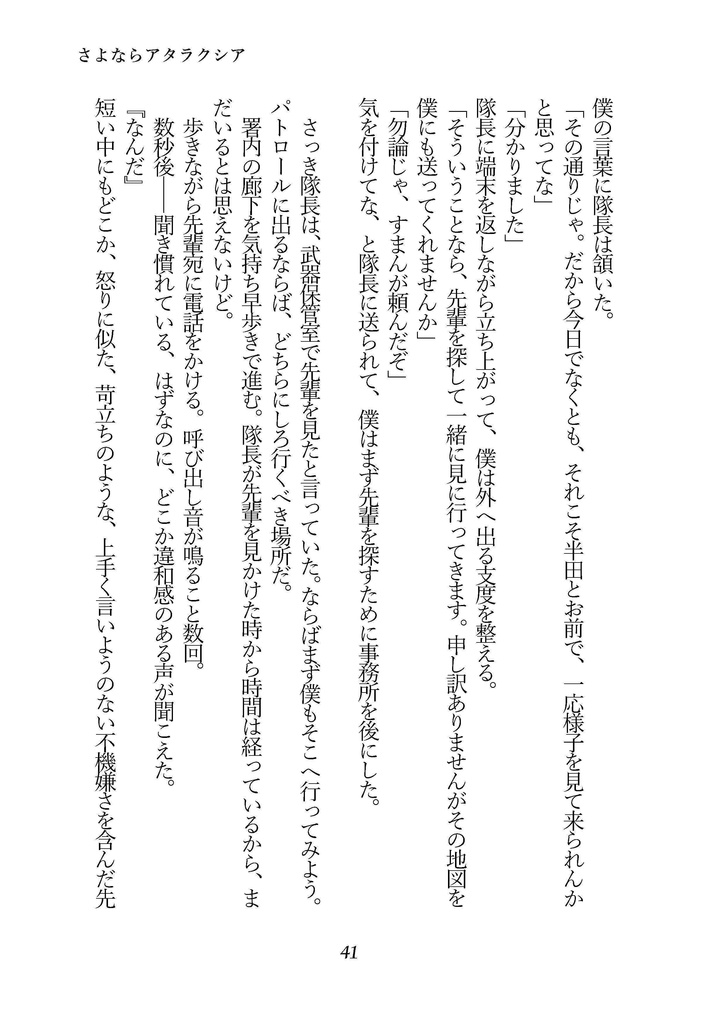 さよならアタラクシア
僕の言葉に隊長は頷いた。
「その通りじゃ。だから今日でなくとも、それこそ半田とお前で、一応様子を見て来られんか
と思ってな」
「分かりました」
隊長に端末を返しながら立ち上がって、僕は外へ出る支度を整える。
「そういうことなら、先輩を探して一緒に見に行ってきます。申し訳ありませんがその地図を
僕にも送ってくれませんか」
「勿論じゃ、すまんが頼んだぞ」
気を付けてな、と隊長に送られて、僕はまず先輩を探すために事務所を後にした。
さっき隊長は、武器保管室で先輩を見たと言っていた。ならばまず僕もそこへ行ってみよう。
パトロールに出るならば、どちらにしろ行くべき場所だ。
署内の廊下を気持ち早歩きで進む。隊長が先輩を見かけた時から時間は経っているから、ま
だいるとは思えないけど。
歩きながら先輩宛に電話をかける。呼び出し音が鳴ること数回。
数秒後――聞き慣れている、はずなのに、どこか違和感のある声が聞こえた。
『なんだ』
短い中にもどこか、怒りに似た、苛立ちのような、上手く言いようのない不機嫌さを含んだ先
41